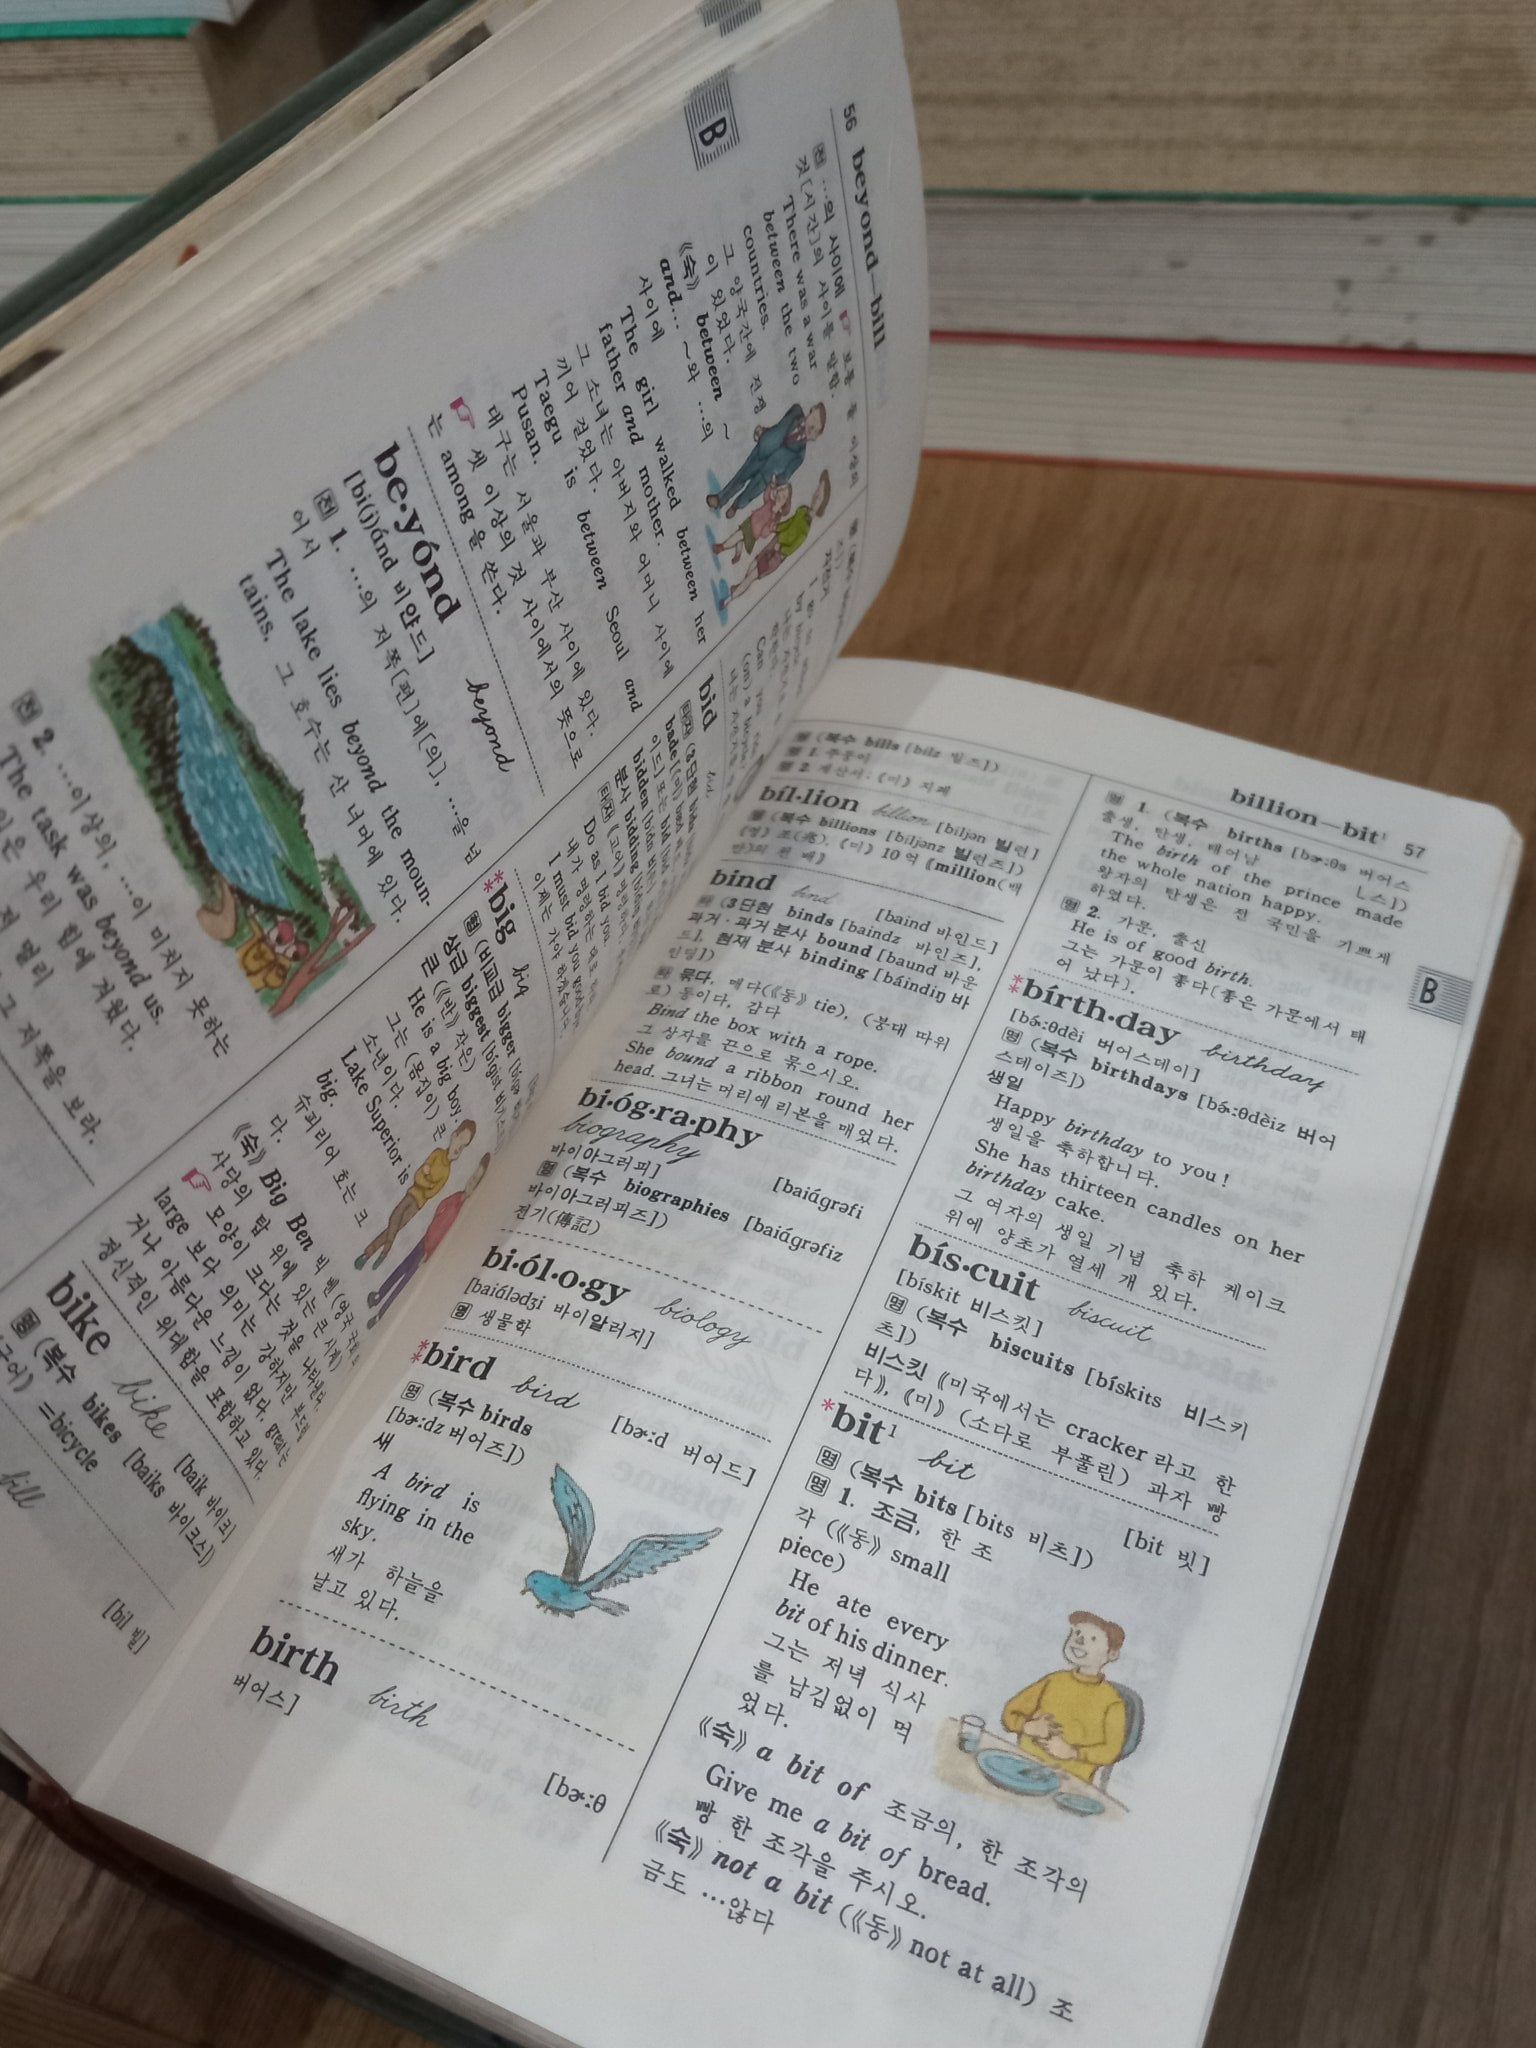 56 beyond—bill
B
전 …의 사이에 ☞ 보통 둘 이상의
것[시간]의 사이를 말함.
There was a war
between the two
countries.
그 양국간에 전쟁
이 있었다.
《숙》 between ~
and… ~와 …의
사이에
The girl walked between her
father and mother.
그 소녀는 아버지와 어머니 사이에
끼어 걸었다.
Taegu is between Seoul and
Pusan.
대구는 서울과 부산 사이에 있다.
☞ 셋 이상의 것 사이에서의 뜻으로
는 among을 쓴다.
be·yónd beyond
[bi(j)ánd 비얀드]
전 1. …의 저쪽[편]에[의], …을 넘
어서
The lake lies beyond the moun-
tains. 그 호수는 산 너머에 있다.
전 2. …이상의, …이 미치지 못하는
The task was beyond us.
우리 힘에 겨웠다.
그 저쪽을 보라.
Can you
(on) a bicycle?
bid bid
bidden
분사 bidding
Do as I bid you.
I must bid you goodbye.
이제는 가야 하겠습니다.
**big big
형 (비교급 bigger
상급 biggest
큰 (《반》 작은)
He is a big boy.
그는 (몸집이) 큰
소년이다.
Lake Superior is
big.
슈피리어 호는 크
다.
《숙》 Big Ben 빅 벤
사당의 탑 위에 있는 큰 시계)
☞ 모양이 크다는 것을 나타낸다.
large 보다 의미는 강하지만 부드럽
거나 아름다운 느낌이 없다. great는
정신적인 위대함을 포함하고 있다.
bike bike [baik 바이크]
명 (복수 bikes [baiks 바이크스])
=bicycle
bill
[bil 빌]
billion—bit¹ 57
B
명 (복수 bills [bilz 빌즈])
명 1. 주둥이
명 2. 계산서; (미) 지폐
bíl·lion billion [bíljən 빌련]
명 (복수 billions [bíljənz 빌련즈])
(영) 조(兆), (미) 10억 《million(백
만)의 천 배》
bind bind [baind 바인드]
타 (3단현 binds [baindz 바인즈],
과거·과거 분사 bound [baund 바운
드], 현재 분사 binding [báindiŋ 바
인딩])
타 묶다, 매다(《동》 tie), (붕대 따위
로) 동이다, 감다
Bind the box with a rope.
그 상자를 끈으로 묶으시오.
She bound a ribbon round her
head. 그녀는 머리에 리본을 매었다.
bi·óg·ra·phy
biography [baiágrəfi
바이아그러피]
명 (복수 biographies [baiágrəfiz
바이아그러피즈])
전기(傳記)
bi·ól·o·gy biology
[baiálədʒi 바이알러지]
명 생물학
**bird bird [bə:d 버어드]
명 (복수 birds
[bə:dz 버어즈])
새
A bird is
flying in the
sky.
새가 하늘을
날고 있다.
birth birth [bə:θ
버어스]
명 1. (복수 births [bə:θs 버어스
ㄴ스])
출생, 탄생, 태어남
The birth of the prince made
the whole nation happy.
왕자의 탄생은 전 국민을 기쁘게
하였다.
명 2. 가문, 출신
He is of good birth.
그는 가문이 좋다(좋은 가문에서 태
어 났다).
**bírth·day birthday
[bə́:θdèi 버어스데이]
명 (복수 birthdays [bə́:θdèiz 버어
스데이즈])
생일
Happy birthday to you!
생일을 축하합니다.
She has thirteen candles on her
birthday cake.
그 여자의 생일 기념 축하 케이크
위에 양초가 열세 개 있다.
bís·cuit biscuit
[bískit 비스킷]
명 (복수 biscuits [bískits 비스키
츠])
비스킷 《미국에서는 cracker라고 한
다》, (미) (소다로 부풀린) 과자 빵
*bit¹ bit [bit 빗]
명 (복수 bits [bits 비츠])
명 1. 조금, 한 조
각 (《동》 small
piece)
He ate every
bit of his dinner.
그는 저녁 식사
를 남김없이 먹
었다.
《숙》 a bit of 조금의, 한 조각의
Give me a bit of bread.
빵 한 조각을 주시오.
《숙》 not a bit (《동》 not at all) 조
금도 …않다